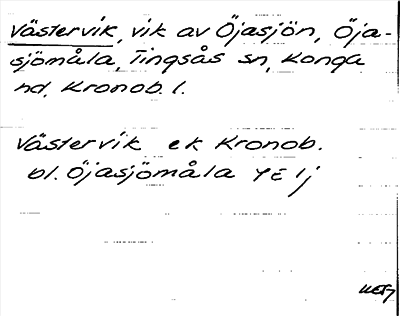 Västervik, vik av Öjasjön, Öja-
sjömåla, Tingsås sn, Konga
hd, Kronob. l.
Västervik ek Kronob.
bl. Öjasjömåla 4E1j